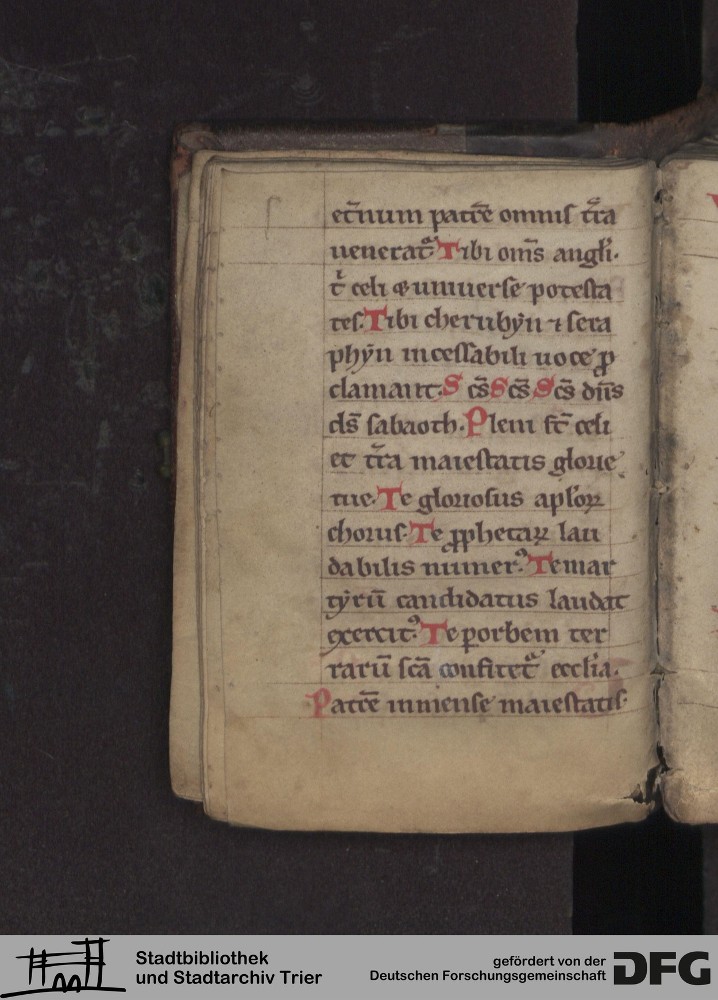 et̄num patrē omnis t̄ra
uenerat᷑ Tibi om̄s angl̄i·
t̄ celi ⁊ uniuerse potesta
tes. Tibi cherubẏn ⁊ sera
phẏn incessabili uoce ꝓ
clamant. S cs̄ Scs̄ Scs̄ dn̄s
ds̄ sabaoth. Pleni st̄ celi
et t̄ra maiestatis glorie
tue. Te gloriosus apl̄oꝝ
chorus. Te ꝓphetaꝝ lau
dabilis numerꝰ. Te mar
tẏrū candidatus laudat
exercitꝰ. Te per orbem ter
rarū scā confitet᷑ eccl̄ia.
Patrē inmense maiestatis.
Stadtbibliothek
und Stadtarchiv Trier
gefördert von der
Deutschen Forschungsgemeinschaft
DFG